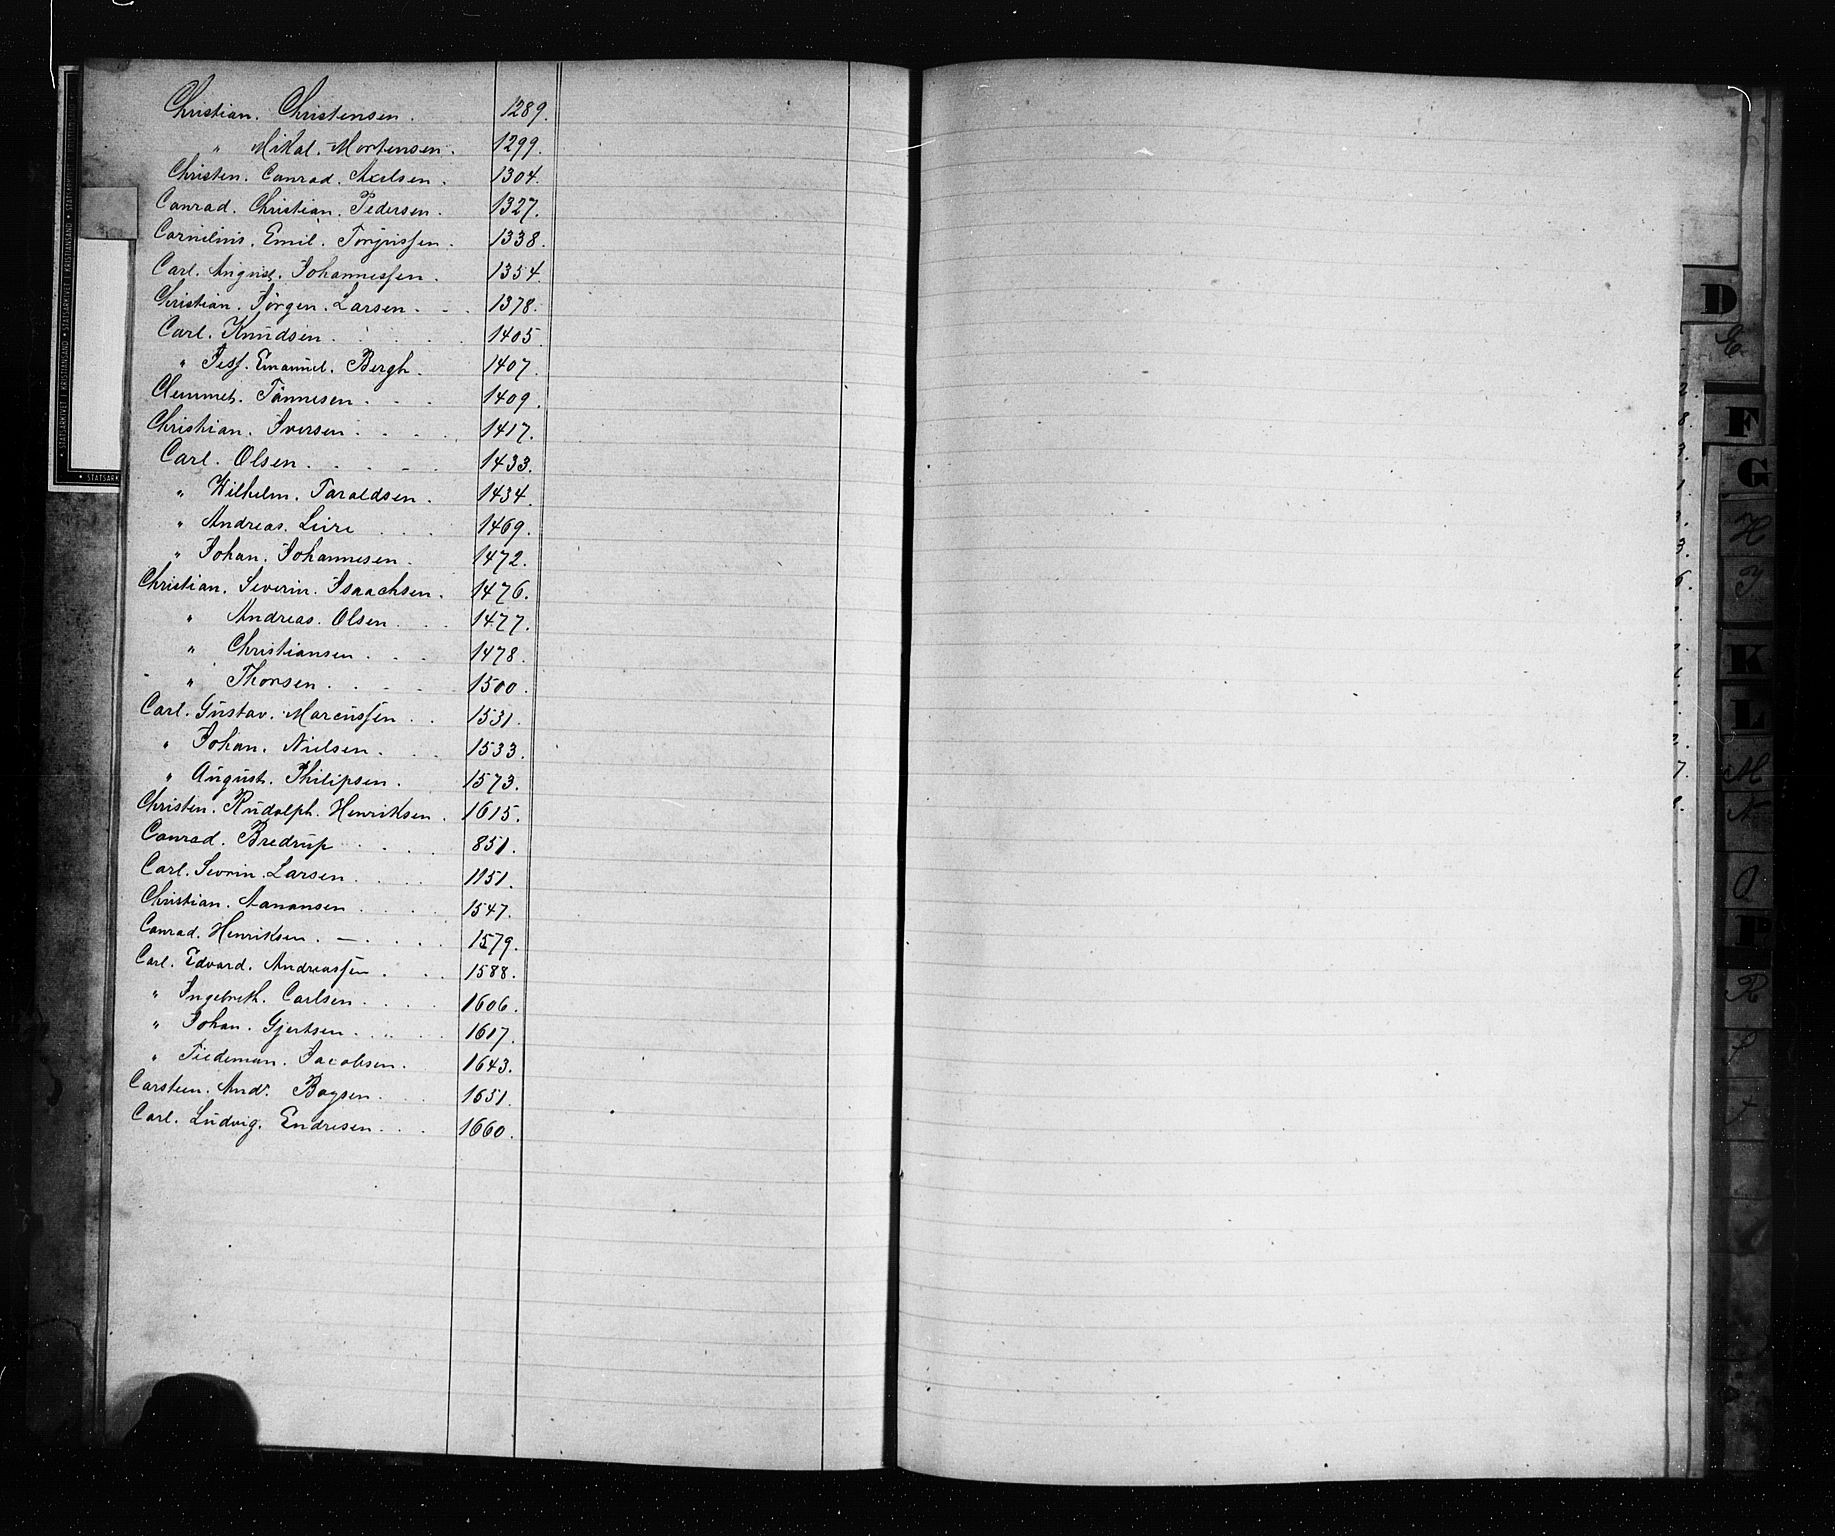 Christian. Christensen. 1289.
" Mikal. Mortensen. 1299.
Christen. Conrad. Axelsen. 1304.
Conrad. Christian. Pedersen. 1327.
Cornelius. Emil. Torjussen. 1338.
Carl. August. Johannessen. 1354.
Christian. Jørgen. Larsen. 1378.
Carl. Knudsen. 1405.
" Jesf. Emanuel. Bergh. 1407.
Clemmet. Tønnesen. 1409.
Christian. Iversen. 1417.
Carl. Olsen. 1433.
" Wilhelm. Taraldsen. 1434.
" Andreas. Leire 1469.
" Johan. Johannesen. 1472.
Christian. Severin. Isaachsen. 1476.
" Andreas. Olsen. 1477.
" Christiansen. 1478.
" Thorsen. 1500.
Carl. Gustav. Marcussen. 1531.
" Johan. Nielsen. 1533.
" August. Philipsen. 1573.
Christen. Rudolph. Henriksen. 1615.
Conrad. Bredrup 851.
Carl. Sevrin. Larsen. 1151.
Christian. Aanansen. 1547.
Conrad. Henriksen. 1579.
Carl. Edvard. Andreassen. 1588.
" Ingebreth. Carlsen. 1606.
" Johan. Gjertsen. 1617.
" Tiedeman. Jacobsen. 1643.
Carsteen. Andr. Boysen. 1651.
Carl. Ludvig. Endresen. 1660.
STATSARKIVET I KRISTIANSAND • STATSARKIVET I KRISTIANSAND • STATSARKIVET
D
E.
F
G
H
I
K
L
M
N
O
P
R